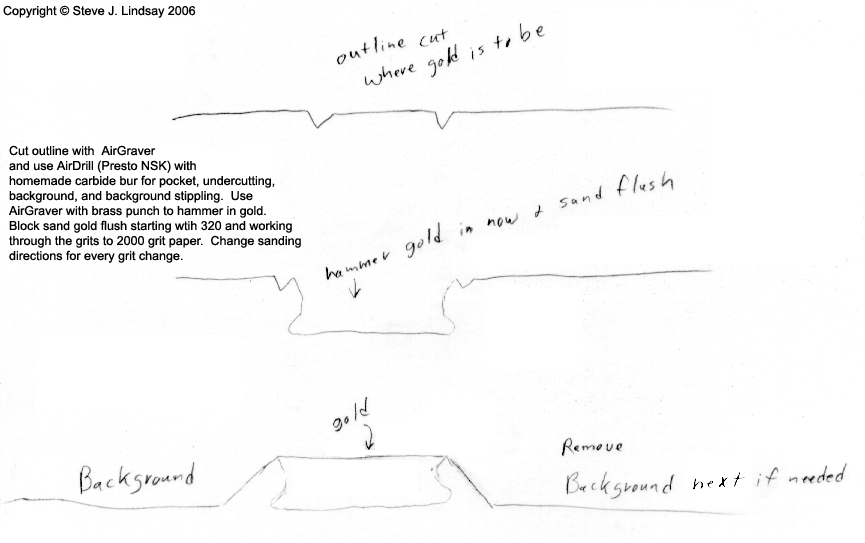 Copyright © Steve J. Lindsay 2006
outline cut
where gold is to be
Cut outline with AirGraver
and use AirDrill (Presto NSK) with
homemade carbide bur for pocket, undercutting,
background, and background stippling. Use
AirGraver with brass punch to hammer in gold.
Block sand gold flush starting wtih 320 and working
through the grits to 2000 grit paper. Change sanding
directions for every grit change.
hammer gold in now & sand flush
gold
Background
Remove
Background next if needed